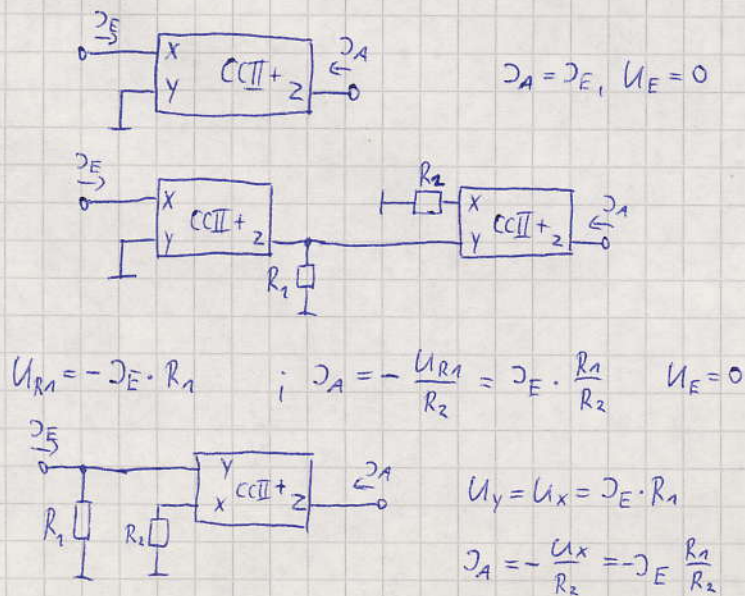 I_E
X
Y
CCII+
Z
I_A
I_A = I_E, U_E = 0
I_E
X
Y
CCII+
Z
R1
R2
X
Y
CCII+
Z
I_A
U_R1 = - I_E · R1 ; I_A = - U_R1 / R2 = I_E · R1 / R2 U_E = 0
I_E
R1
R2
Y
X
CCII+
Z
I_A
U_Y = U_X = I_E · R1
I_A = - U_X / R2 = - I_E R1 / R2